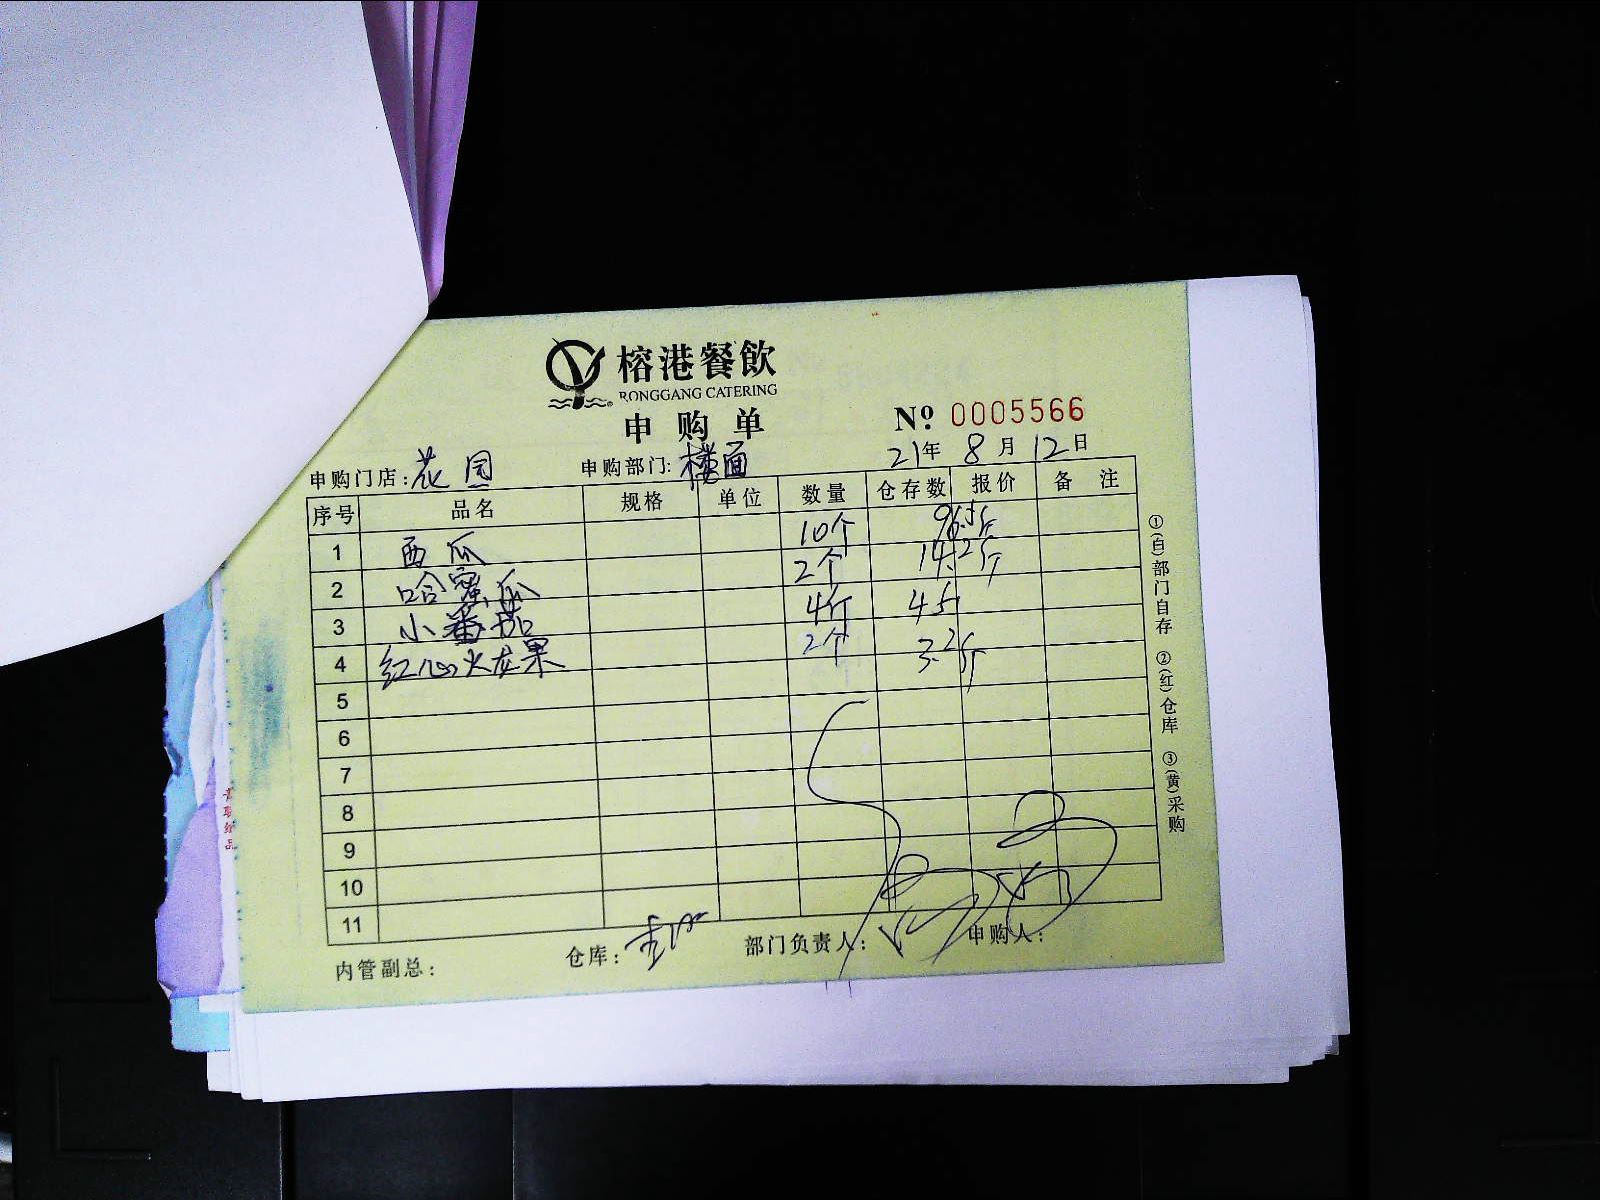 榕港餐飲
RONGGANG CATERING
申购单
№ 0005566
21年 8月 12日
申购门店:花园 申购部门:楼面
序号 品名 规格 单位 数量 仓存数 报价 备注
1 西瓜 10个 96.5斤
2 哈蜜瓜 2个 14.2斤
3 小番茄 4斤 4斤
4 红心火龙果 2个 3.2斤
5
6
7
8
9
10
11
内管副总: 仓库: 部门负责人: 申购人:
①(白)部门自存 ②(红)仓库 ③(黄)采购